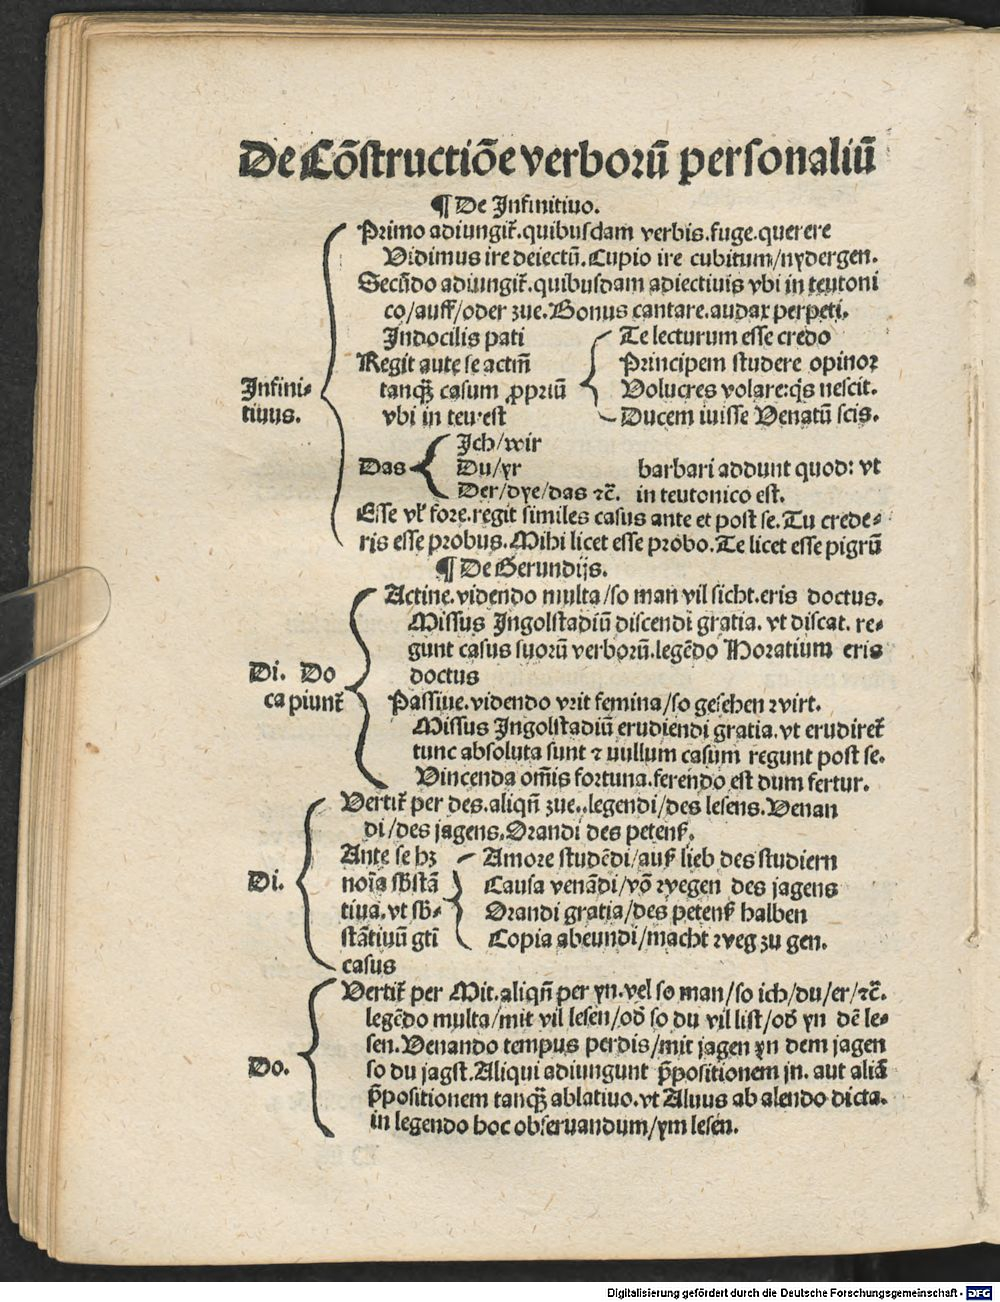 De Cõstructiõe verborũ personaliũ
¶ De Infinitiuo.
Primo adiungit̃.quibusdam verbis.fuge.querere
Vidimus ire deiectũ.Cupio ire cubitum/nydergen.
Secũdo adiungit̃.quibusdam adiectiuis vbi in teutoni
co/auff/oder zue.Bonus cantare.audax perpeti.
Indocilis pati
Regit aute se actm̃
tanqꝫ casum ꝓpriũ
vbi in teu.est
Te lecturum esse credo
Principem studere opinor
Volucres volare:q̃s nescit.
Ducem iuisse Venatũ scis.
Infini-
tiuus.
Das
Ich/wir
Du/yr
Der/dye/das ⁊c̃.
barbari addunt quod: vt
in teutonico est.
Esse vl̕ fore.regit similes casus ante et post se.Tu crede-
ris esse probus.Mihi licet esse probo.Te licet esse pigrũ
¶ De Gerundijs.
Di. Do
capiunt̃
Actiue.videndo multa/so man vil sicht.eris doctus.
Missus Ingolstadiũ discendi gratia. vt discat. re-
gunt casus suorũ verborũ.legẽdo Horatium eris
doctus
Passiue.videndo vrit femina/so gesehen wirt.
Missus Ingolstadiũ erudiendi gratia. vt erudiret̃
tunc absoluta sunt ⁊ nullum casum regunt post se.
Vincenda om̃is fortuna.ferendo est dum fertur.
Di.
Vertit̃ per des.aliqñ zue..legendi/des lesens.Venan
di/des jagens.Orandi des petenſ.
Ante se hꝫ
noĩa sb̃stã
tiua.vt sb̃-
stãtiuũ gtĩ
casus
Amore studẽdi/auß lieb des studiern
Causa venãdi/võ wegen des jagens
Orandi gratia/des petenſ halben
Copia abeundi/macht weg zu gen.
Do.
Vertit̃ per Mit.aliqñ per yn.vel so man/so ich/du/er/⁊c̃.
legẽdo multa/mit vil lesen/od̃ so du vil list/od̃ yn dẽ le-
sen.Venando tempus perdis/mit jagen yn dem jagen
so du jagst.Aliqui adiungunt p̃positionem jn. aut aliã
p̃positionem tanqꝫ ablatiuo.vt Aluus ab alendo dicta.
in legendo hoc obseruandum/ym lesen.
Digitalisierung gefördert durch die Deutsche Forschungsgemeinschaft - DFG